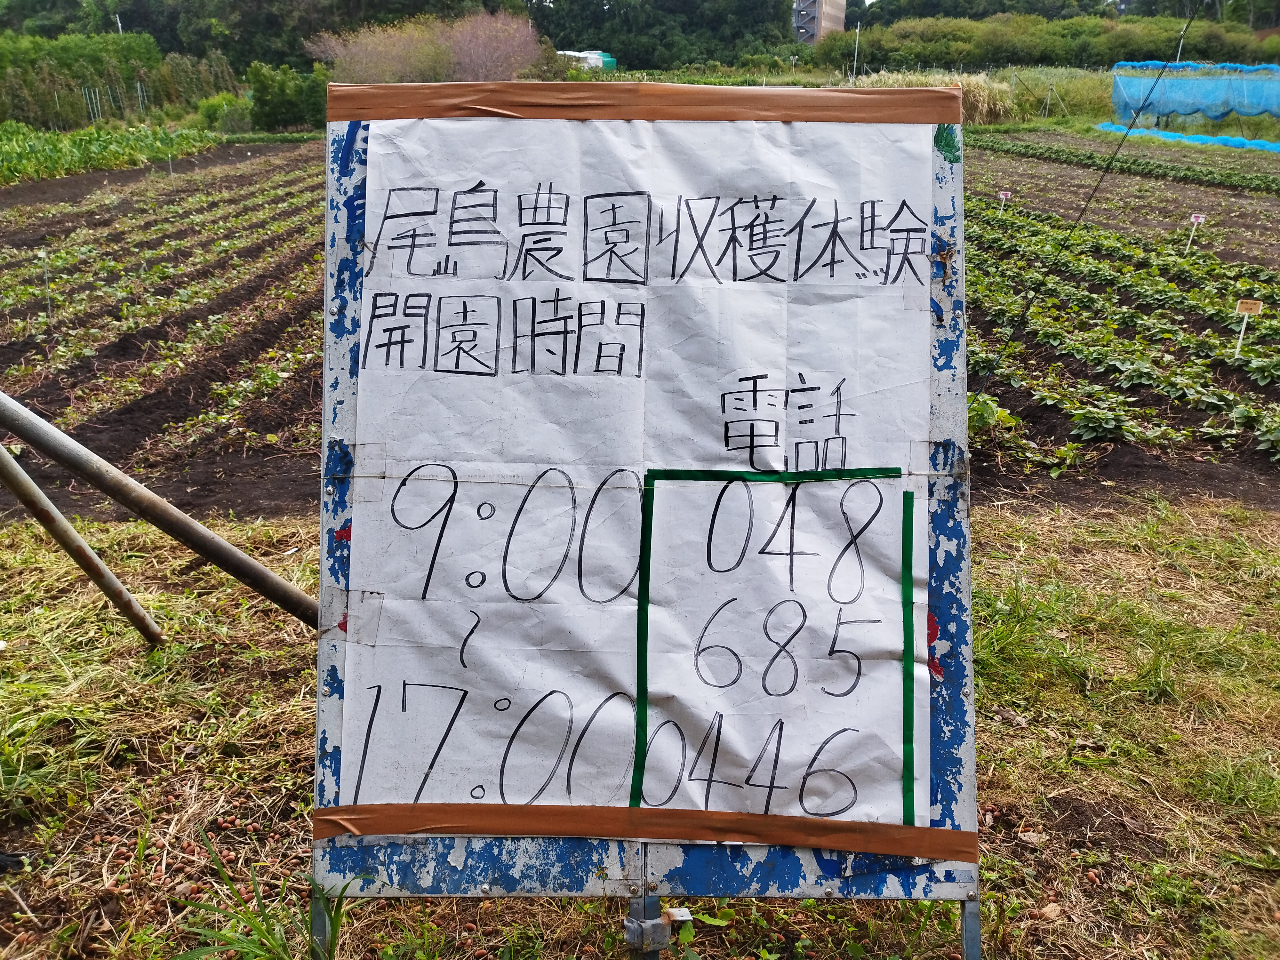 尾島農園収穫体験
開園時間
電話
9:00
〜
17:00
048
685
0446